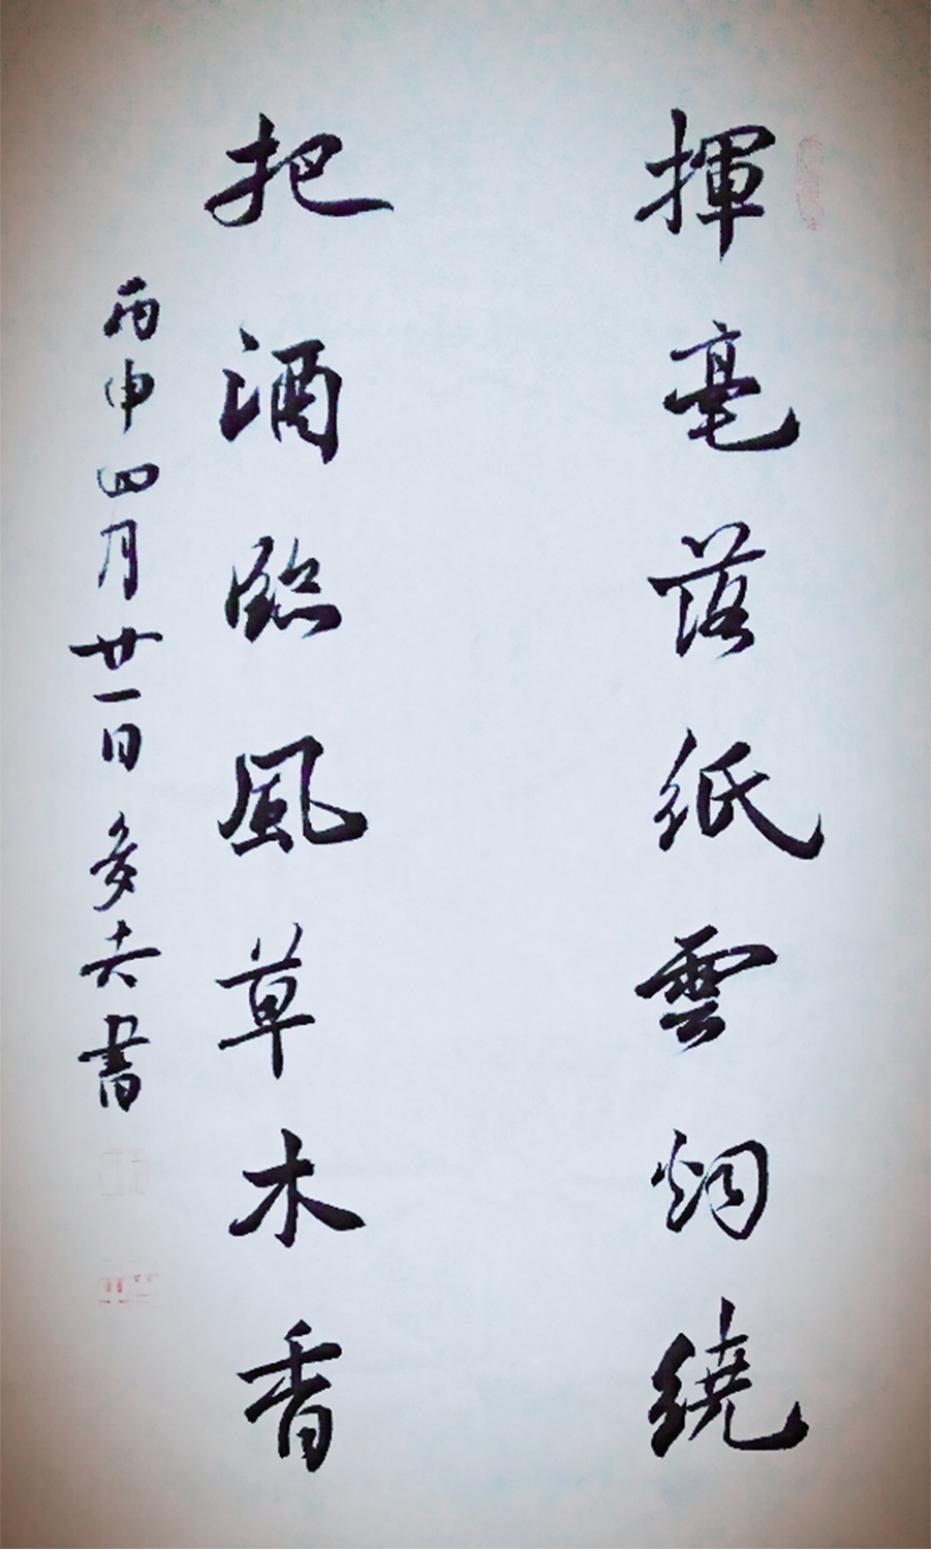 揮毫落紙雲烟繞
把酒臨風草木香
丙申四月廿一日多書